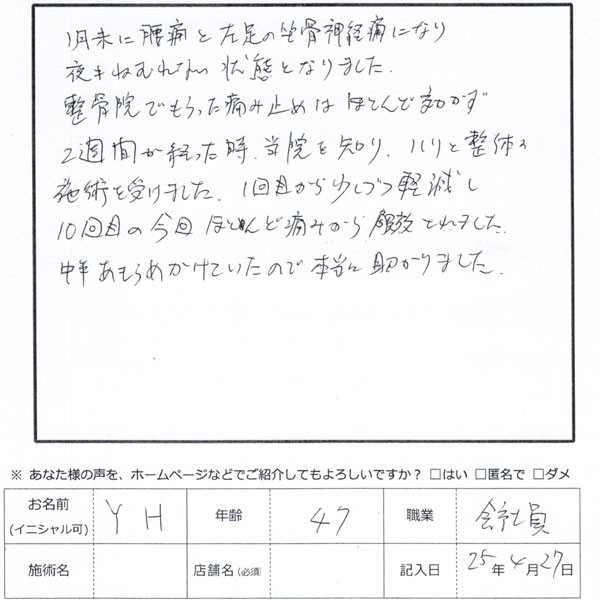 1月末に腰痛と左足の坐骨神経痛になり
夜もねむれない状態となりました。
整骨院でもらった痛み止めはほとんど効かず
2週間が経った時、当院を知り、ハリと整体の
施術を受けました。1回目から少しづつ軽減し
10回目の今回ほとんど痛みから解放されました。
半あきらめかけていたので本当に助かりました。
※ あなた様の声を、ホームページなどでご紹介してもよろしいですか? □はい □匿名で □ダメ
お名前 (イニシャル可) Y H 年齢 47 職業 会社員
施術名 店舗名(必須) 記入日 25年4月27日